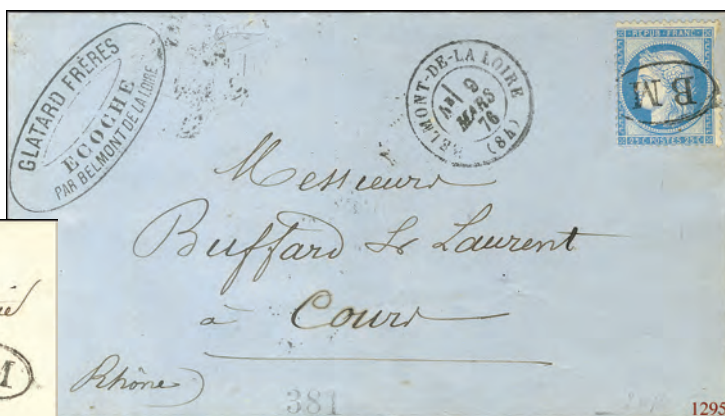 GLATARD FRÈRES
ECOCHE
PAR BELMONT DE LA LOIRE
BELMONT-DE-LA LOIRE
9
MARS
76
(84)
REPUB · FRANC ·
BM
25 · C · POSTES · 25 · C
Messieurs
Buffard & Laurent
à Cours
Rhône
381
1295